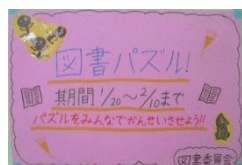 図書パズル!
期間 1/20〜2/10まで
パズルをみんなでかんせいさせよう!!
図書委員会